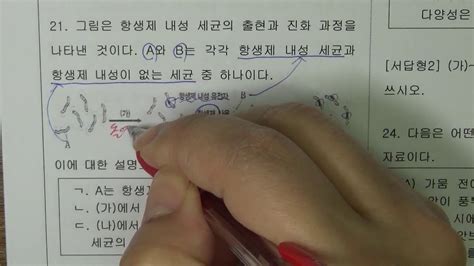 21. 그림은 항생제 내성 세균의 출현과 진화 과정을
나타낸 것이다. A와 B는 각각 항생제 내성 세균과
항생제 내성이 없는 세균 중 하나이다.
항생제 내성 유전자
B
(가)
돌
이에 대한 설명
ㄱ. A는 항생제
ㄴ. (가)에서
ㄷ. (나)에서
세균의
다양성은
[서답형2]
쓰시오.
24. 다음은 어떤
자료이다.
(가) 가뭄 전